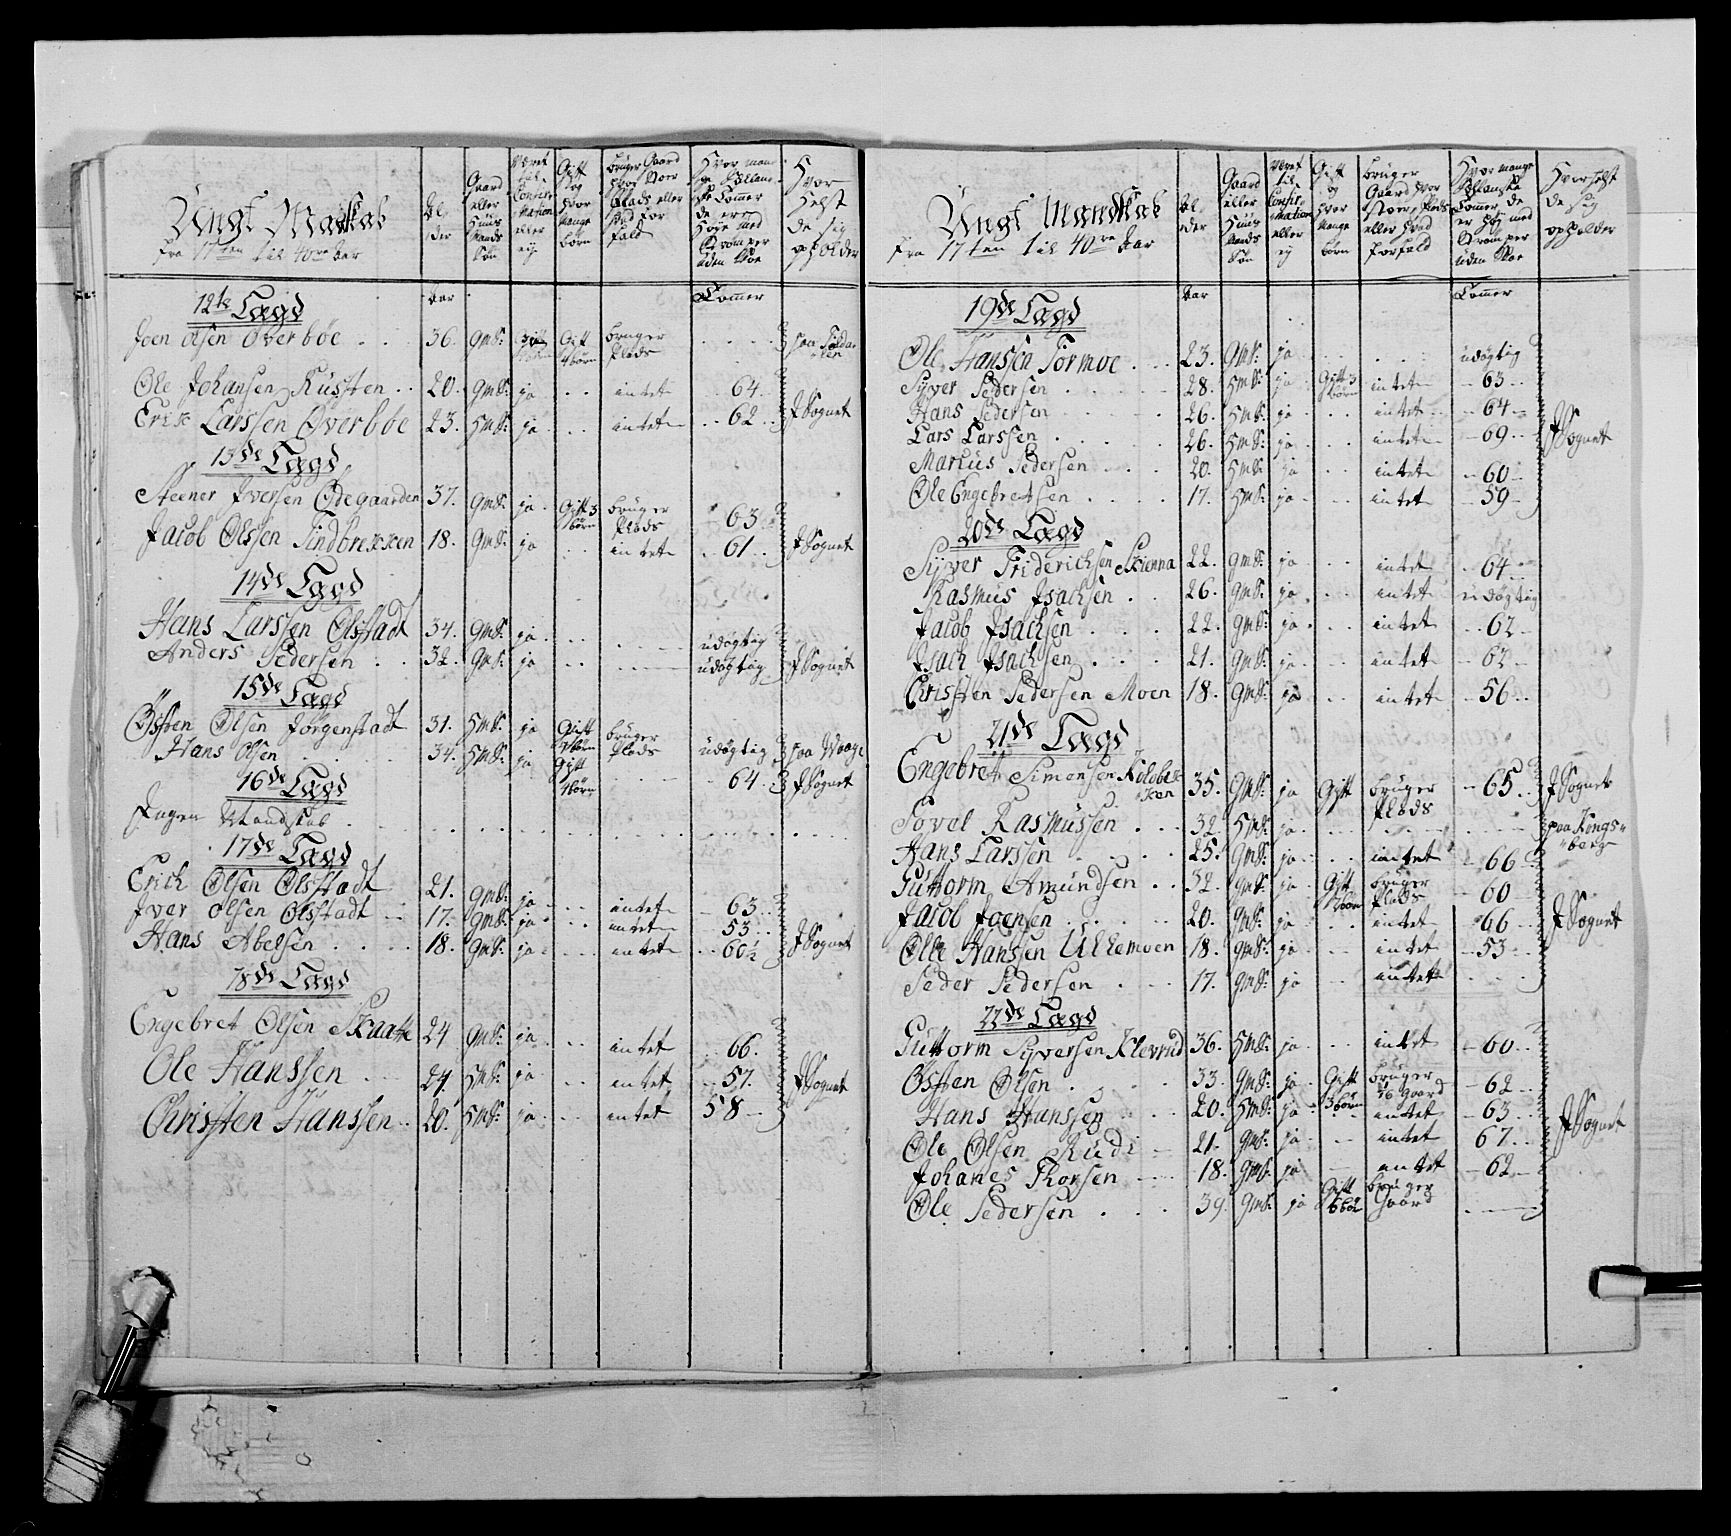 Ungt Mandskab
fra 17ten til 40re Aar
Al,
der
Gaard
eller
Huus
Mands
Søn
Været
til
Confir
mation
eller
ej
Gift
og
hvor
Mange
børn
bruger Gaard
hvor stoer
Plads eller
hvad for
fald
Hvor man
ge Sællans
ke Tommer
de ere
høye med
Strømper
uden Skoe
Hvor
helst
de sig
opholder
Aar
Tommer
12te Lægd
Joen Olsen Øverbøe . . . 36. GMS: Gift børn bruger Plads . . . . paa Soldaten
Ole Johansen Kusften . . 20. GMS: ja . . intet 64.
Erik Larssen Øverbøe 23. HMS: ja . . . intet . . 62 . . J Sognet
13de Lægd
Steener Iversen Ødegaarden 37. GMS: ja . Gift 3 børn bruger Plads 63.
Jacob Olssen Sindbrekken 18. GMS: ja . . intet . 61 . . J Sognet
14de Lægd
Hans Larssen Olsstadt 34. GMS: ja . . . udøgtig
Anders Pedersen . . 32. GMS: ja . . udøgtig J Sognet
15de Lægd
Østen Olsen Jørgenstadt 31. HMS: ja Gift børn bruger Plads udøgtig paa Waage
Hans Olsen . . . . . 34. HMS: ja Gift børn . . 64. J Sognet
16de Lægd
Ingen Mandskab . . . . . . . .
17de Lægd
Erich Olsen Olsstadt 21. GMS: ja . . . intet 63 . .
Iver Olsen Olsstadt 17. GMS: ja . . . intet 53 . .
Hans Abelsen . . . . 18. GMS: ja . . . intet . . 60½ J Sognet
18de Lægd
Engebret Olsen Skaatte 24 GMS: ja . . . intet . . 66.
Ole Hanssen . . . 24. HMS: ja . . intet 57. J Sognet
Christen Hanssen . . 20. HMS: ja . . . intet 58
Ungt Mandskab
fra 17ten til 40re Aar
Al,
der
Gaard
eller
Huus
Mands
Søn
Været
til
Confir
mation
eller
ej
Gift
og
hvor
Mange
børn
bruger
Gaard hvor
stoer, Plads
eller hvad
forfald
Hvor mange
Sællanske
Tommer de
er høy med
Strømper
uden Skoe
Hvorhelst
de sig
opholder
Aar
Tommer
19de Lægd
Ole Hanssen Tormoe . . . 23. GMS: ja . . . . . . udøgtig
Syver Pedersen . . . . 28. HMS: ja Gift 3 børn intet 63 . .
Hans Pedersen . . . . 26. HMS: ja . . . intet 64
Lars Larssen . . . . . 26. HMS: ja . . . intet 69 . . J Sognet
Marcus Pedersen . . . 20. HMS: ja . . intet 60
Ole Engebretsen . . . . 17. HMS: ja . . . intet 59
20de Lægd
Syver Friderichsen Skienna 22. GMS: ja . . intet 64 . .
Rasmus Isachsen . . 26. GMS: ja . . . intet udøgtig
Jacob Isachsen . . . . 22. GMS: ja . . . intet . . 62
Isach Isachsen . . . . 21. GMS: ja . . . intet 62 . .
Christen Pedersen Moen 18. GMS: ja . . intet 56 . .
21de Lægd
Engebret Simensen Kildbek
ken 35. GMS: ja Gift bruger Plads 65 . . J Sognet
Povel Rasmussen . . . 32. HMS: ja . . . . . . . paa Kongs=
=berg
Hans Larssen . . . . 25. GMS: ja . . . intet 66
Guttorm Amundsen . . 32. GMS: ja Gift børn bruger Plads 60
Jacob Joensen . . . . . 20. GMS: ja . . intet 66 . . J Sognet
Olle Hanssen Ullemoen 18. GMS: ja . . intet 53
Peder Pedersen . . . 17. GMS: ja . . intet . . .
22de Lægd
Guttorm Syversen Klevrud 36. HMS: ja . . . intet 60 . .
Østen Olsen . . . . 33. GMS: ja Gift 3 børn bruger Gaard 62 . .
Hans Hanssen . . . 20. HMS: ja . . intet 63 . .
Ole Olsen Rudi 21. GMS: ja . . intet 67 . . J Sognet
Johanes Thorsen 18. GMS: ja intet 62
Ole Pedersen . . . 39. GMS: ja Gift bruger Gaard . .